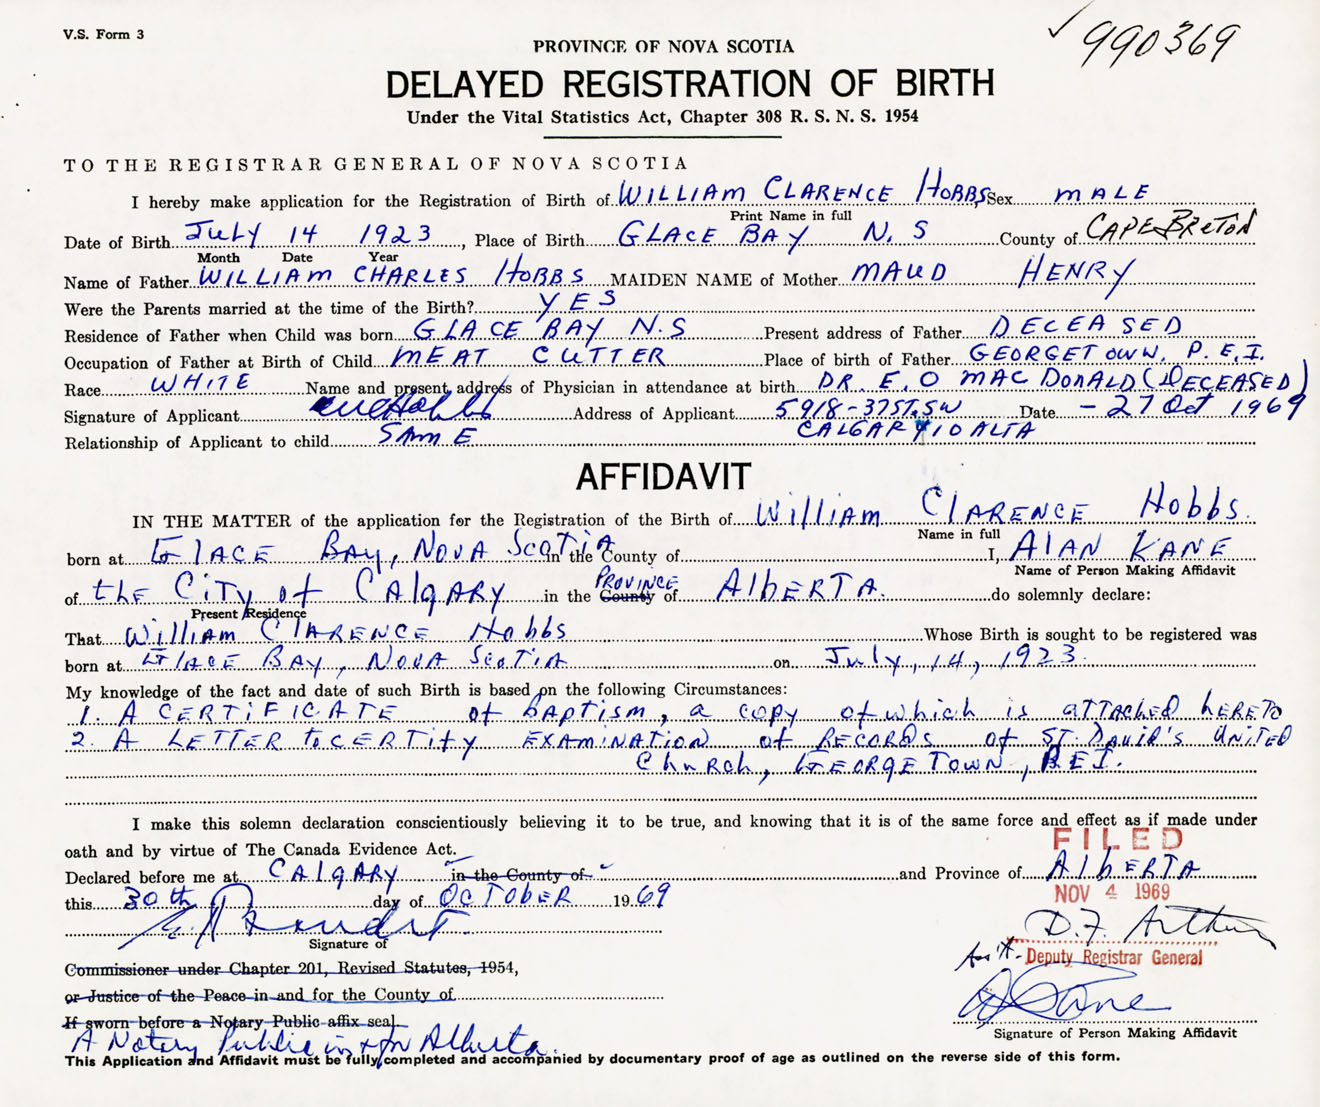 V.S. Form 3
990369
PROVINCE OF NOVA SCOTIA
DELAYED REGISTRATION OF BIRTH
Under the Vital Statistics Act, Chapter 308 R. S. N. S. 1954
TO THE REGISTRAR GENERAL OF NOVA SCOTIA
I hereby make application for the Registration of Birth of WILLIAM CLARENCE HOBBS Sex MALE
Print Name in full
Date of Birth July 14 1923, Place of Birth GLACE BAY N.S County of CAPE BRETON
Month Date Year
Name of Father WILLIAM CHARLES HOBBS MAIDEN NAME of Mother MAUD HENRY
Were the Parents married at the time of the Birth? YES
Residence of Father when Child was born GLACE BAY N.S Present address of Father DECEASED
Occupation of Father at Birth of Child MEAT CUTTER Place of birth of Father GEORGETOWN, P.E.I.
Race WHITE Name and present address of Physician in attendance at birth DR. E.O MACDONALD (DECEASED)
Signature of Applicant WC Hobbs Address of Applicant 5918-37ST.SW Date - 27 Oct 1969
Relationship of Applicant to child SAME CALGARY 10 ALTA
AFFIDAVIT
IN THE MATTER of the application for the Registration of the Birth of William CLARENCE Hobbs.
Name in full
born at GLACE BAY, NOVA SCOTIA in the County of I, ALAN KANE
Name of Person Making Affidavit
of the CITY of CALGARY in the County PROVINCE of ALBERTA. do solemnly declare:
Present Residence
That William CLARENCE Hobbs Whose Birth is sought to be registered was
born at GLACE BAY, NOVA SCOTIA on July, 14, 1923.
My knowledge of the fact and date of such Birth is based on the following Circumstances:
1. A CERTIFICATE of BAPTISM, a copy of which is ATTACHED HERETO
2. A LETTER to CERTIFY EXAMINATION of RECORDS of ST. DAVID'S UNITED
Church, GEORGETOWN, P.E.I.
I make this solemn declaration conscientiously believing it to be true, and knowing that it is of the same force and effect as if made under
oath and by virtue of The Canada Evidence Act.
FILED
Declared before me at CALGARY in the County of and Province of ALBERTA
this 30th day of OCTOBER 1969
NOV 4 1969
D.F. Arthur
Signature of
Ass't. Deputy Registrar General
Commissioner under Chapter 201, Revised Statutes, 1954,
or Justice of the Peace in and for the County of
If sworn before a Notary Public affix seal
Signature of Person Making Affidavit
A Notary Public in & for Alberta.
This Application and Affidavit must be fully completed and accompanied by documentary proof of age as outlined on the reverse side of this form.